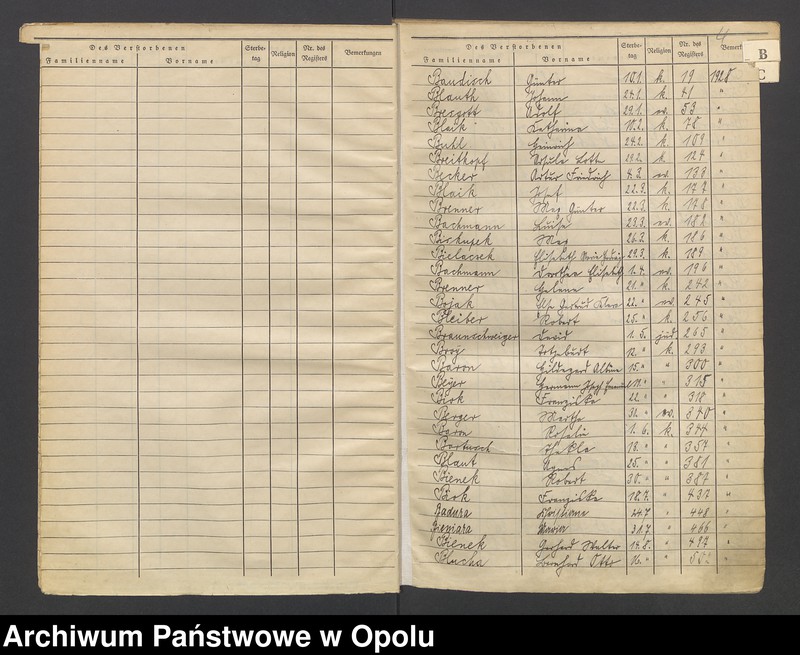 Des Verstorbenen Sterbetag Religion Nr. des Registers Bemerkungen
Familienname Vorname
4
Des Verstorbenen Sterbetag Religion Nr. des Registers Bemerk
Familienname Vorname
B
C
Baudisch Günter 10.1. k. 19 1928
Blauth Johann 24.1. k. 41 "
Bresgott Adolf 29.1. ev. 53 "
Blaik Katharina 10.2. k. 78 "
Buhl Heinrich 24.2. k. 109 "
Breitkopf Ursula Lotte 29.2. k. 124 "
Becker Artur Friedrich 4.3. ev. 138 "
Blaik Josef 22.3. k. 172 "
Brenner Max Günter k. 178 "
Bachmann Luise 23.3. ev. 182 "
Biskupek Max 26.3. k. 186 "
Bielacsek Elisabeth 29.3. k. 189 "
Bachmann Dorothea Elisabeth 1.4. ev. 196 "
Brenner Helene 21. " k. 242 "
Bojak Gertrud Klara 22. " ev. 245 "
Bleiber Robert 25. " k. 256 "
Braunschweiger David 1.5. jüd. 265 "
Broj Totgeburt 12. " k. 293 "
Baron Hildegard 15. " " 300 "
Beyer Hermann Josef " " 315 "
Birk Franziska 22. " " 318 "
Berger Martha 31. " ev. 340 "
Baron Rosalie 1.6. k. 344 "
Bartusch Thekla 18. " " 357 "
Blaut Agnes 25. " " 381 "
Bienek Robert 30. " " 387 "
Brok Franziska 18.7. " 432 "
Badura Christiane 24.7 " 448 "
Bieniara Maria 31.7 " 466 "
Bienek Gerhard Walter 14.8. " 497 "
Blucha Bernhard Otto 16. " "
Archiwum Państwowe w Opolu